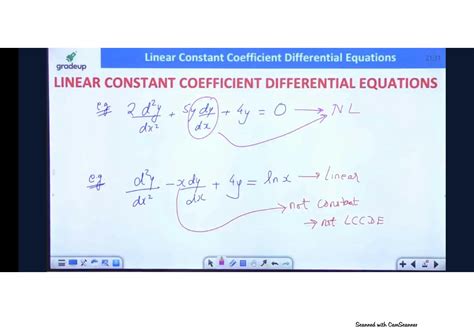 gradeup
Linear Constant Coefficient Differential Equations
21:31
LINEAR CONSTANT COEFFICIENT DIFFERENTIAL EQUATIONS
e.g 2 d²y/dx² + 5y dy/dx + 4y = 0 → NL
e.g d²y/dx² - x dy/dx + 4y = ln x → linear
→ not constant
→ not LCCDE
Scanned with CamScanner